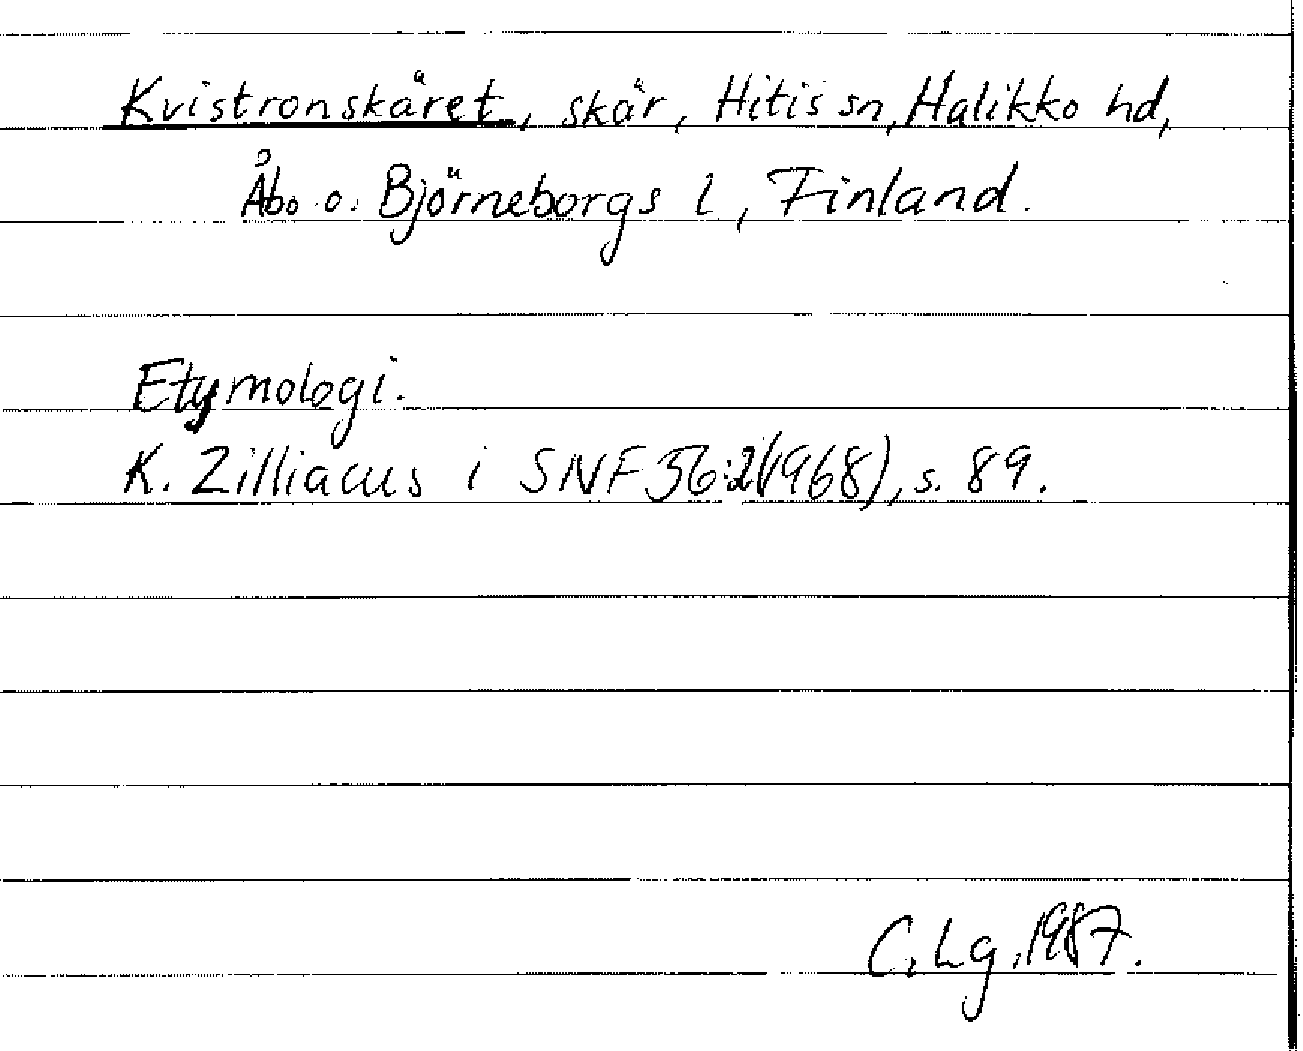 Kvistronskäret, skär, Hitis sn, Halikko hd,
Åbo o. Björneborgs l, Finland.
Etymologi.
K. Zilliacus i SNF 56:2(1968), s. 89.
C. Lg, 1987.